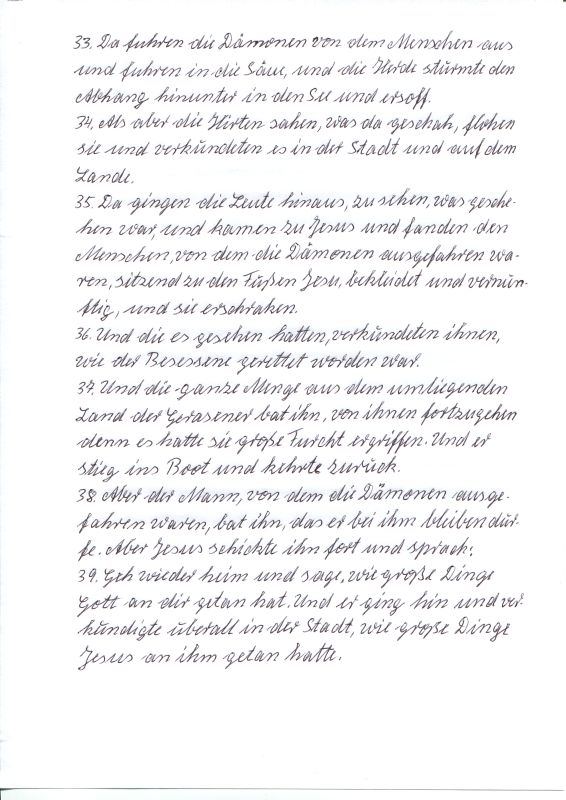 33. Da fuhren die Dämonen von dem Menschen aus
und fuhren in die Säue, und die Herde stürmte den
Abhang hinunter in den See und ersoff.
34. Als aber die Hirten sahen, was da geschah, flohen
sie und verkündeten es in der Stadt und auf dem
Lande.
35. Da gingen die Leute hinaus, zu sehen, was gesche-
hen war, und kamen zu Jesus und fanden den
Menschen, von dem die Dämonen ausgefahren wa-
ren, sitzend zu den Füßen Jesu, bekleidet und vernün-
ftig, und sie erschraken.
36. Und die es gesehen hatten, verkündeten ihnen,
wie der Besessene gerettet worden war.
37. Und die ganze Menge aus dem umliegenden
Land der Gerasener bat ihn, von ihnen fortzugehn
denn es hatte sie große Furcht ergriffen. Und er
stieg ins Boot und kehrte zurück.
38. Aber der Mann, von dem die Dämonen ausge-
fahren waren, bat ihn, das er bei ihm bleiben dür-
fe. Aber Jesus schickte ihn fort und sprach:
39. Geh wieder heim und sage, wie große Dinge
Gott an dir getan hat. Und er ging hin und ver-
kündigte überall in der Stadt, wie große Dinge
Jesus an ihm getan hatte.